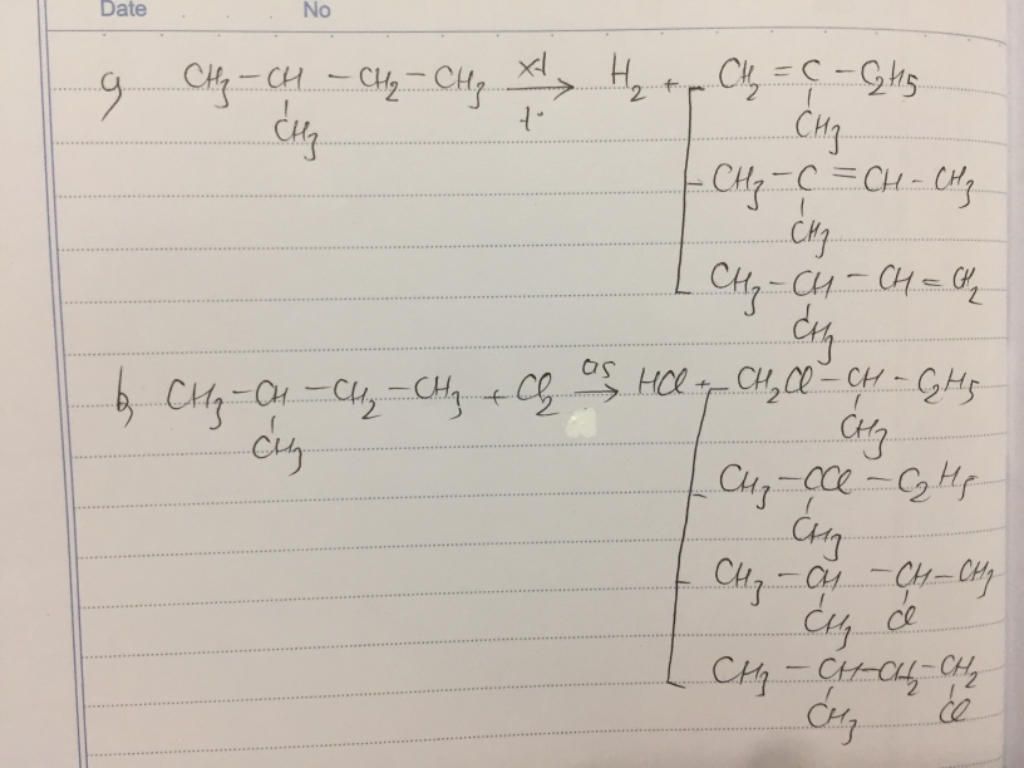 Date No
a, CH3 – CH – CH2 – CH3 xt → t° H2 + CH2 = C – C2H5
CH3 CH3
CH3 – C = CH – CH3
CH3
CH3 – CH – CH = CH2
CH3
b, CH3 – CH – CH2 – CH3 + Cl2 as → HCl + CH2Cl – CH – C2H5
CH3 CH3
CH3 – CCl – C2H5
CH3
CH3 – CH – CH – CH3
CH3 Cl
CH3 – CH – CH2 – CH2
CH3 Cl